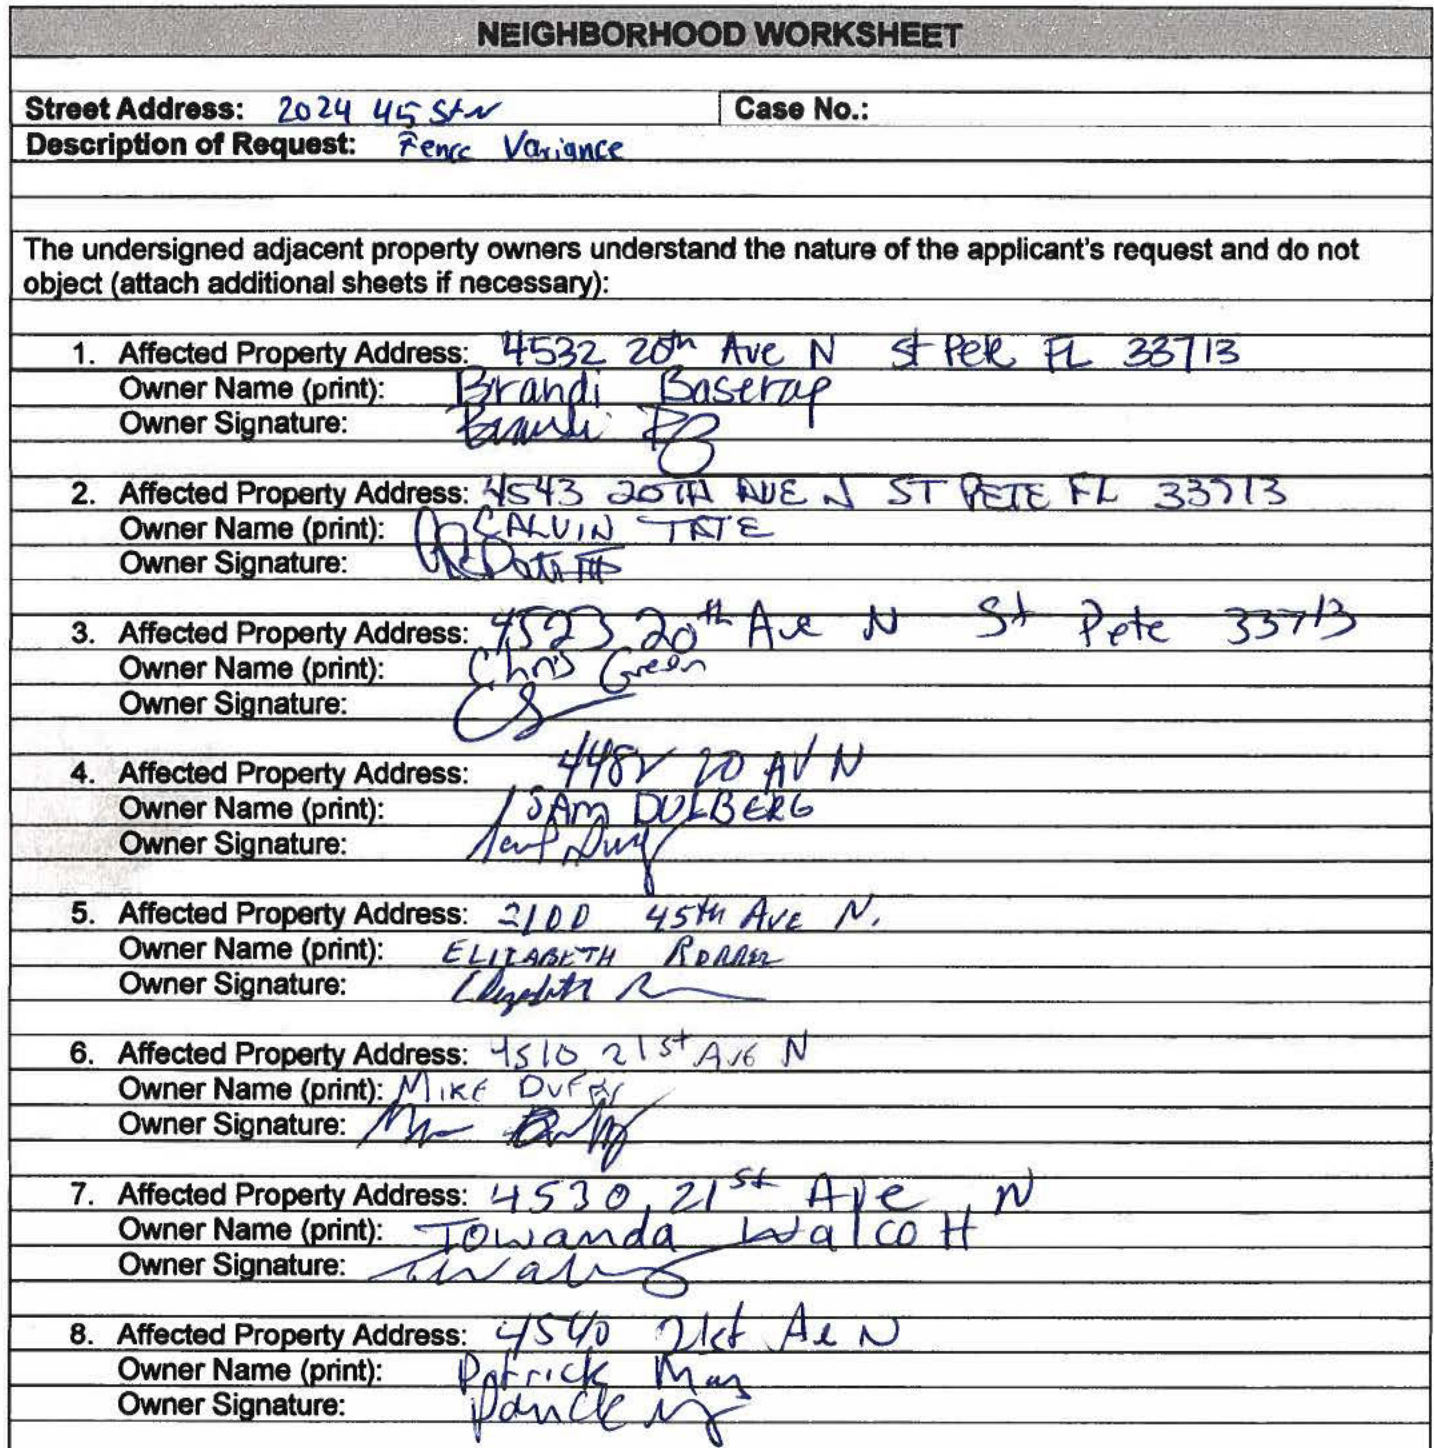 NEIGHBORHOOD WORKSHEET
Street Address: 2024 45 St N Case No.:
Description of Request: Fence Variance
The undersigned adjacent property owners understand the nature of the applicant's request and do not
object (attach additional sheets if necessary):
1. Affected Property Address: 4532 20th Ave N St Pete FL 33713
Owner Name (print): Brandi Baserap
Owner Signature: Brandi
2. Affected Property Address: 4543 20TH AVE N ST PETE FL 33713
Owner Name (print): CALVIN TATE
Owner Signature:
3. Affected Property Address: 4523 20th Ave N St Pete 33713
Owner Name (print): Chris Green
Owner Signature:
4. Affected Property Address: 4482 20 AV N
Owner Name (print): SAM DULBERG
Owner Signature:
5. Affected Property Address: 2100 45th AVE N.
Owner Name (print): ELIZABETH RORRER
Owner Signature: Elizabeth
6. Affected Property Address: 4510 21st AVE N
Owner Name (print): MIKE DUFFY
Owner Signature:
7. Affected Property Address: 4530 21st Ave N
Owner Name (print): Towanda Walcott
Owner Signature:
8. Affected Property Address: 4540 21st Ae N
Owner Name (print): Patrick May
Owner Signature: Patrick